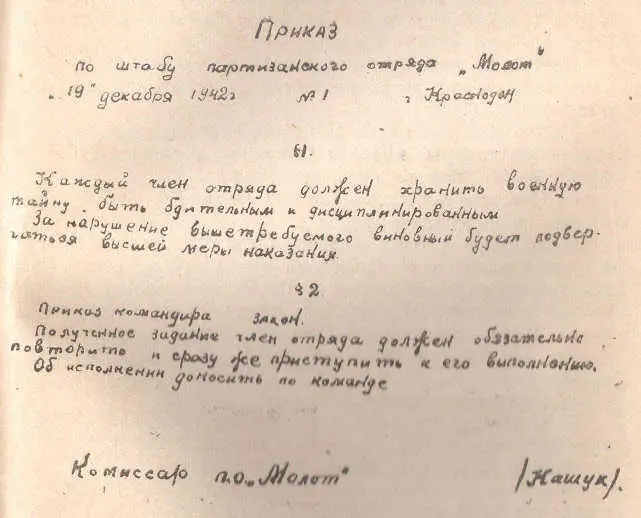 Приказ
по штабу партизанского отряда „Молот"
„19" декабря 1942г №1 г Краснодон
§1.
Каждый член отряда должен хранить военную
тайну, быть бдительным и дисциплинированным
За нарушение вышетребуемого виновный будет подвер-
гаться высшей меры наказания.
§2
Приказ командира закон.
Полученное задание член отряда должен обязательно
повторить и сразу же приступить к его выполнению.
Об исполнении доносить по команде
Комиссар п.о. „Молот" /Кашук/.